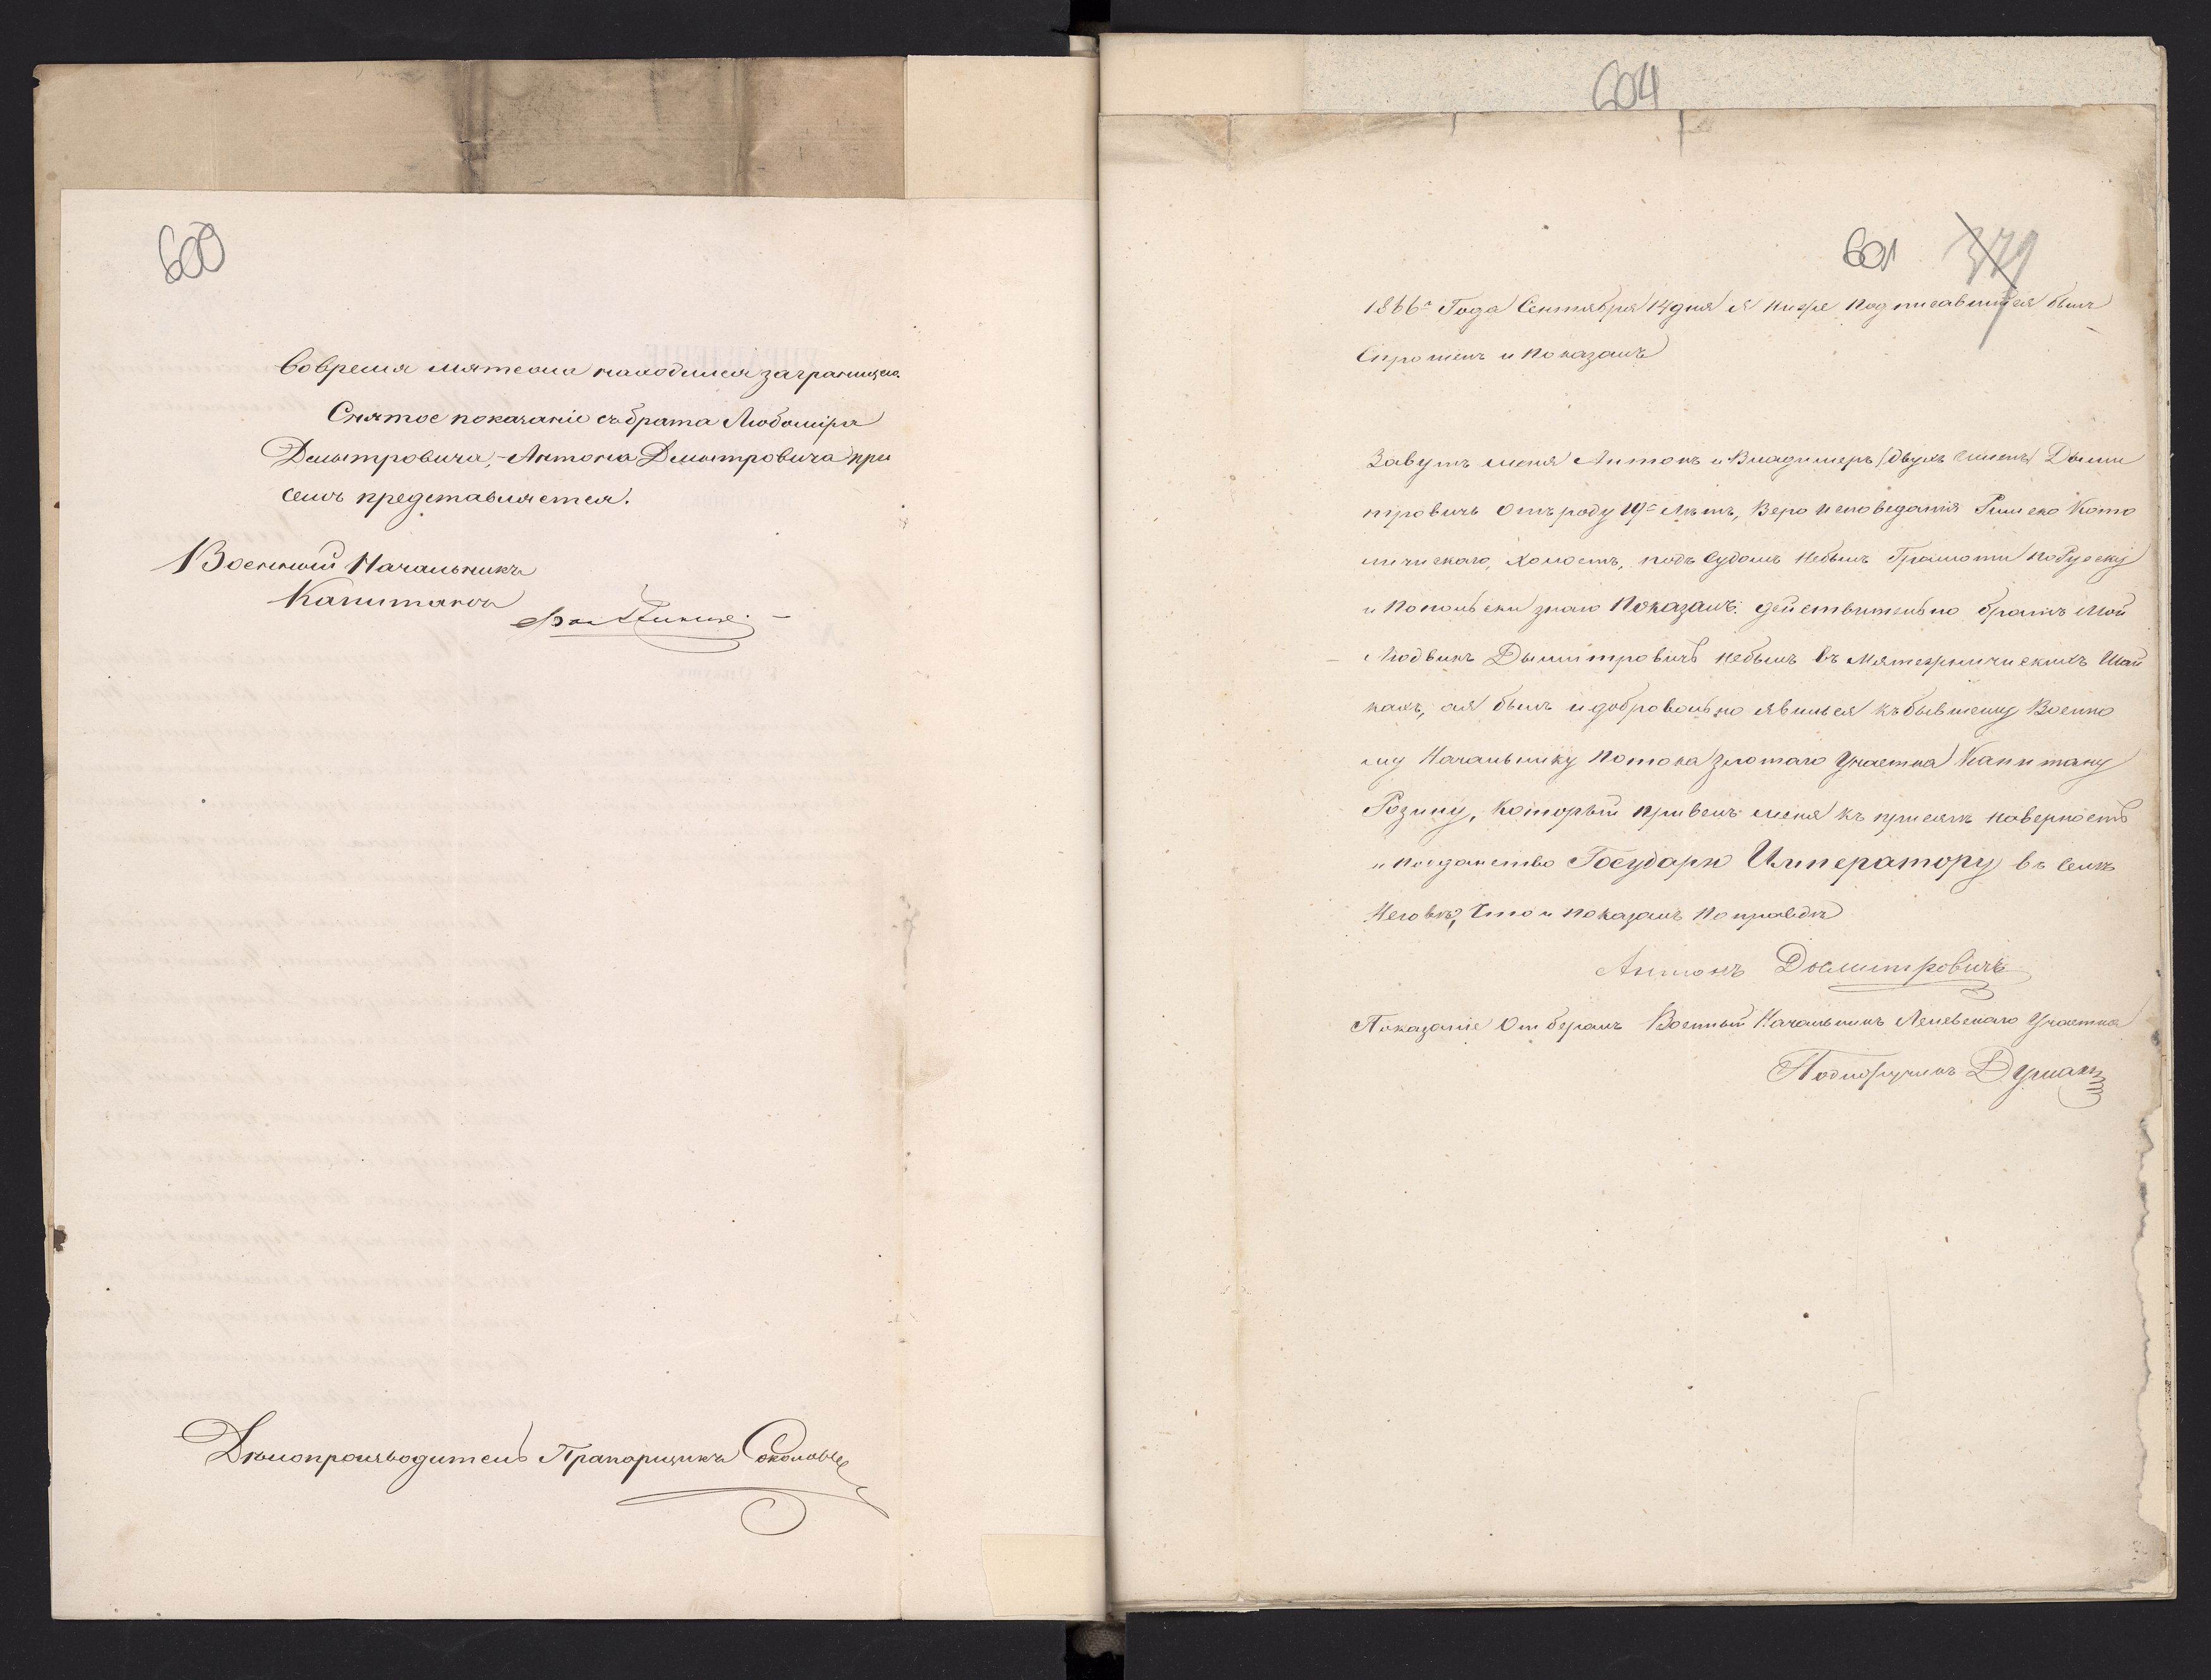 600
Вовремя мятежа находился заграницею.
Снятое показаніе съ брата Любоміра
Дмытровича, - Антона Дмытровича при
семъ представляется.
Военный Начальникъ
Капитанъ
Дѣлопроизводитель Прапорщикъ Соколовъ
604
601 379
1866го Года Сентября 14 дня я ниже подписавшійся былъ
Спрошенъ и показалъ
Завутъ меня Антонъ и Владимеръ (двухъ именъ) Дыми
тровичь отъ роду 19ть лѣтъ, Веро исповеданія Римско Като
личискаго, холостъ, подъ судомъ небылъ Грамоти по Руску
и попольски знаю показалъ: действительно братъ мой
Людвикъ Дымитровичь небылъ въ мятежничискихъ Шай
кахъ, а я былъ и добровольно явился къ бывшему Военно
му Начальнику Потока злотаго Участка Капитану
Розину, который привелъ меня къ присягѣ на верность
и подданство Государю Императору въ селѣ
Неговѣ, Что и показалъ по правдѣ
Антонъ Дымитровичъ
Показаніе отбералъ Военный Начальникъ Лелевскаго Участка
Подпоручикъ